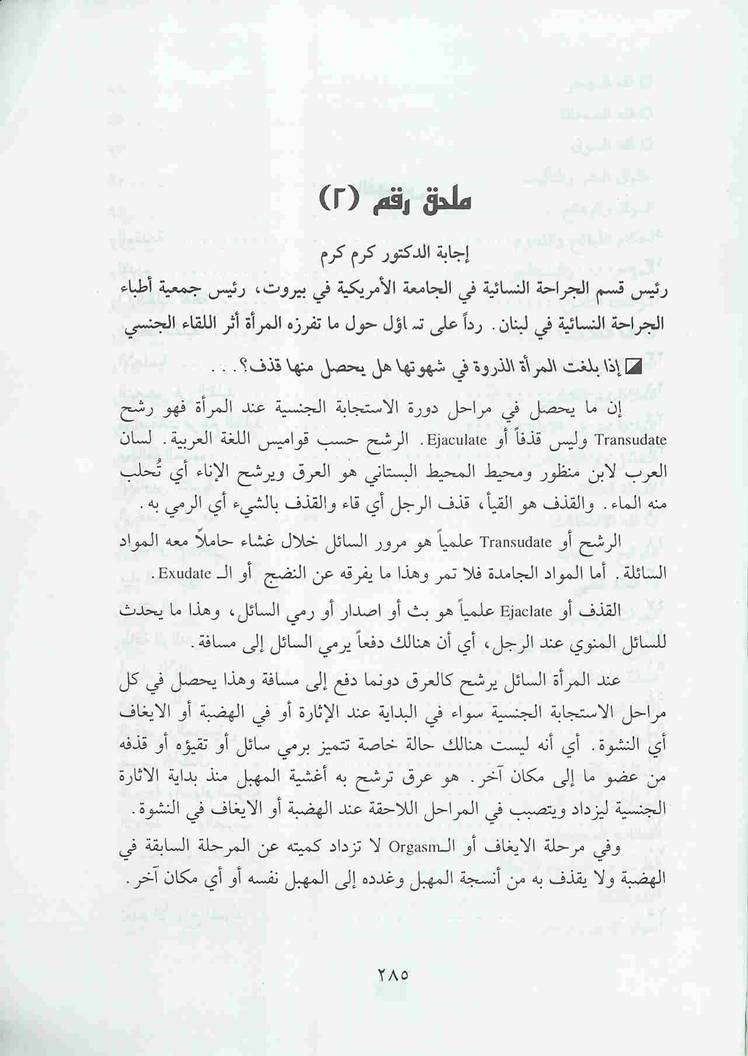 ملحق رقم (٢)
إجابة الدكتور كرم كرم
رئيس قسم الجراحة النسائية في الجامعة الأمريكية في بيروت، رئيس جمعية أطباء
الجراحة النسائية في لبنان. رداً على تساؤل حول ما تفرزه المرأة أثر اللقاء الجنسي
إذا بلغت المرأة الذروة في شهوتها هل يحصل منها قذف؟...
إن ما يحصل في مراحل دورة الاستجابة الجنسية عند المرأة فهو رشح
Transudate وليس قذفاً أو Ejaculate. الرشح حسب قواميس اللغة العربية. لسان
العرب لابن منظور ومحيط المحيط البستاني هو العرق ويرشح الإناء أي تُحلب
منه الماء. والقذف هو القيأ، قذف الرجل أي قاء والقذف بالشيء أي الرمي به.
الرشح أو Transudate علمياً هو مرور السائل خلال غشاء حاملاً معه المواد
السائلة. أما المواد الجامدة فلا تمر وهذا ما يفرقه عن النضج أو الـ Exudate.
القذف أو Ejaclate علمياً هو بث أو اصدار أو رمي السائل، وهذا ما يحدث
للسائل المنوي عند الرجل، أي أن هنالك دفعاً يرمي السائل إلى مسافة.
عند المرأة السائل يرشح كالعرق دونما دفع إلى مسافة وهذا يحصل في كل
مراحل الاستجابة الجنسية سواء في البداية عند الإثارة أو في الهضبة أو الايغاف
أي النشوة. أي أنه ليست هنالك حالة خاصة تتميز برمي سائل أو تقيؤه أو قذفه
من عضو ما إلى مكان آخر. هو عرق ترشح به أغشية المهبل منذ بداية الاثارة
الجنسية ليزداد ويتصبب في المراحل اللاحقة عند الهضبة أو الايغاف في النشوة.
وفي مرحلة الايغاف أو الـ Orgasm لا تزداد كميته عن المرحلة السابقة في
الهضبة ولا يقذف به من أنسجة المهبل وغدده إلى المهبل نفسه أو أي مكان آخر.
٢٨٥